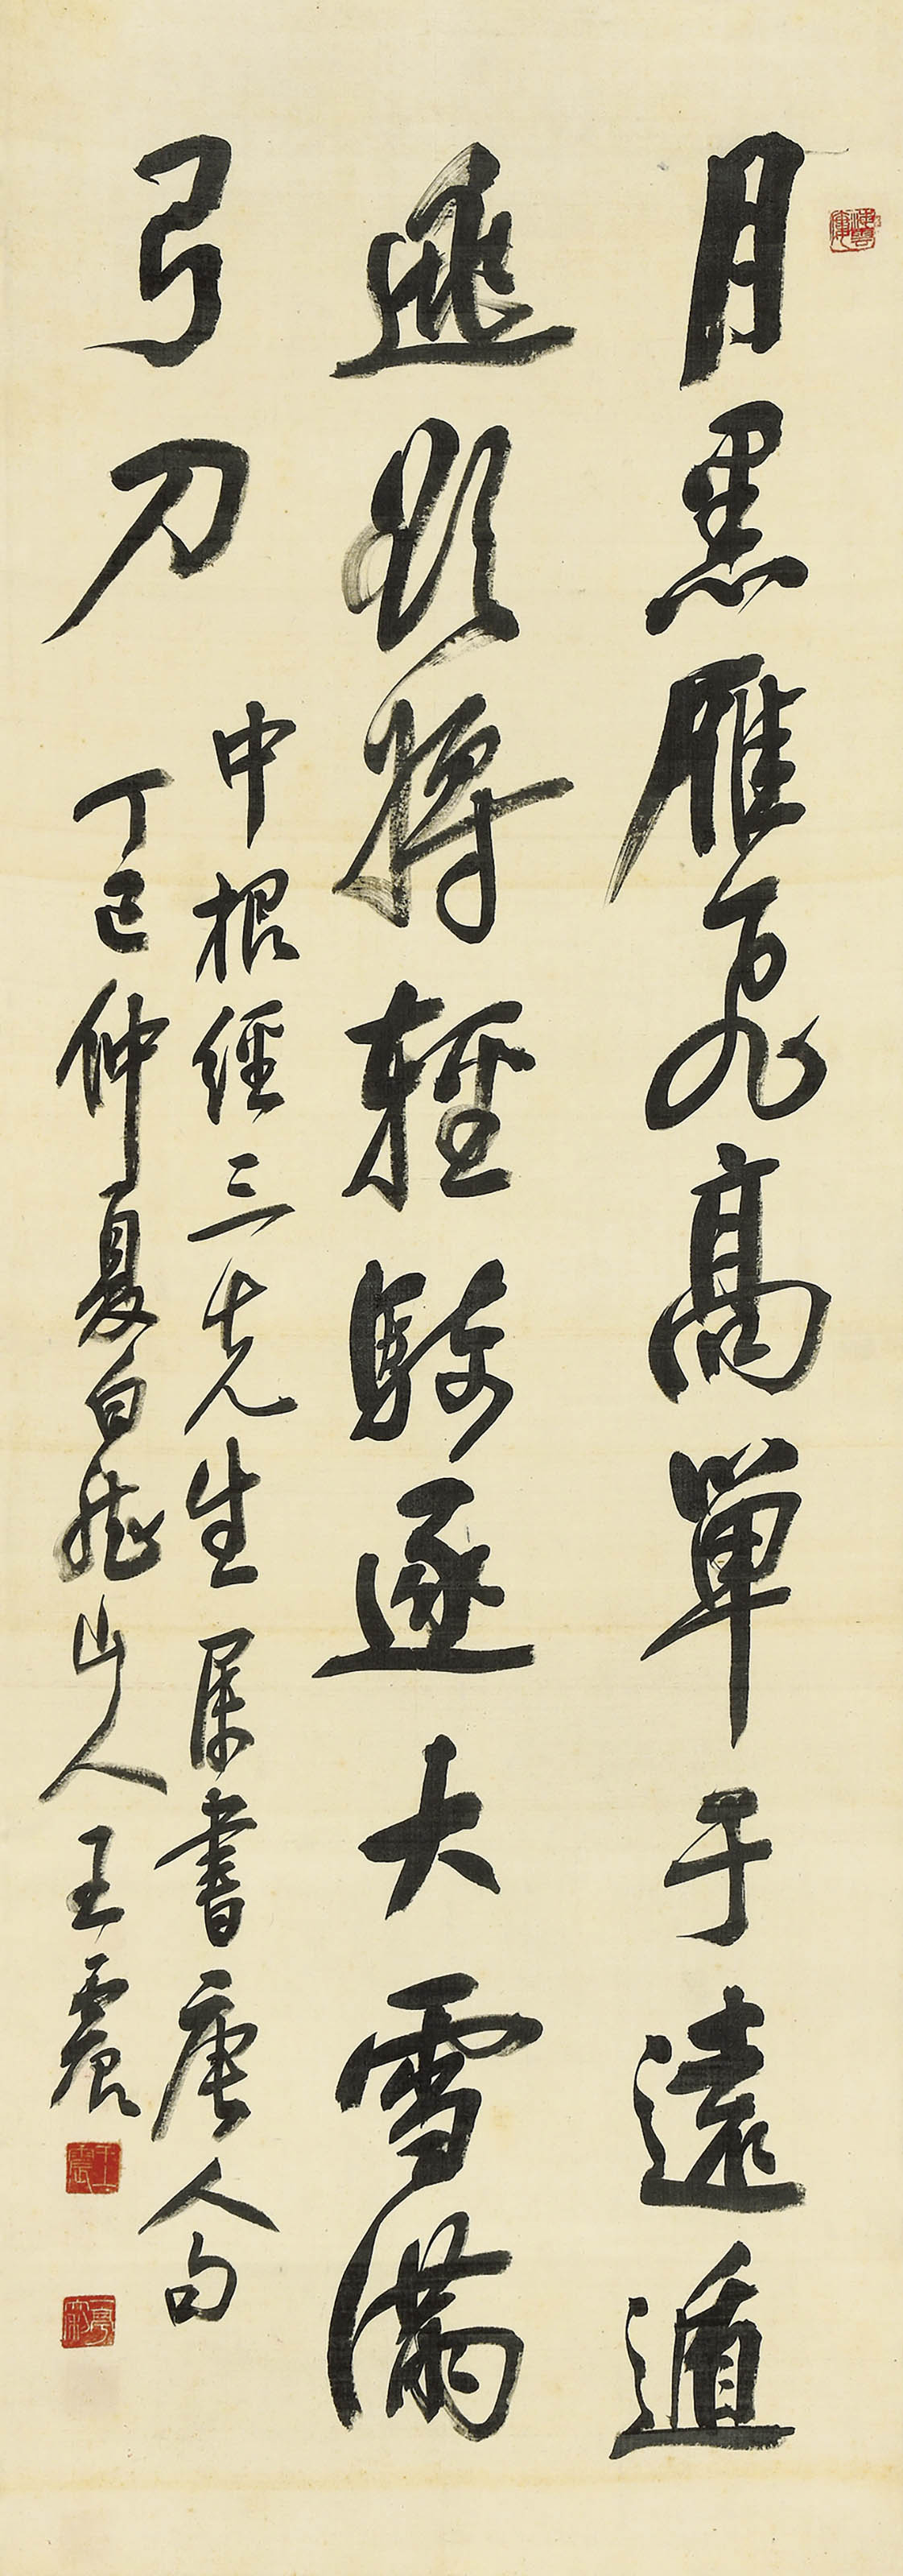 月黑雁飛高單于遠遁
逃欲將輕騎逐大雪滿
弓刀
中根經三先生属書唐人句
丁巳仲夏白龍山人王震
王震